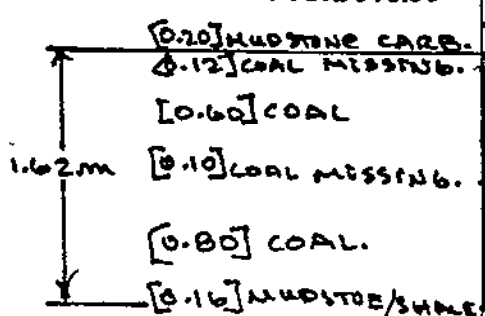 [0.20] MUDSTONE CARB.
[0.12] COAL MISSING.
[0.60] COAL
1.62m [0.10] COAL MISSING.
[0.80] COAL.
[0.16] MUDSTOE/SHALE